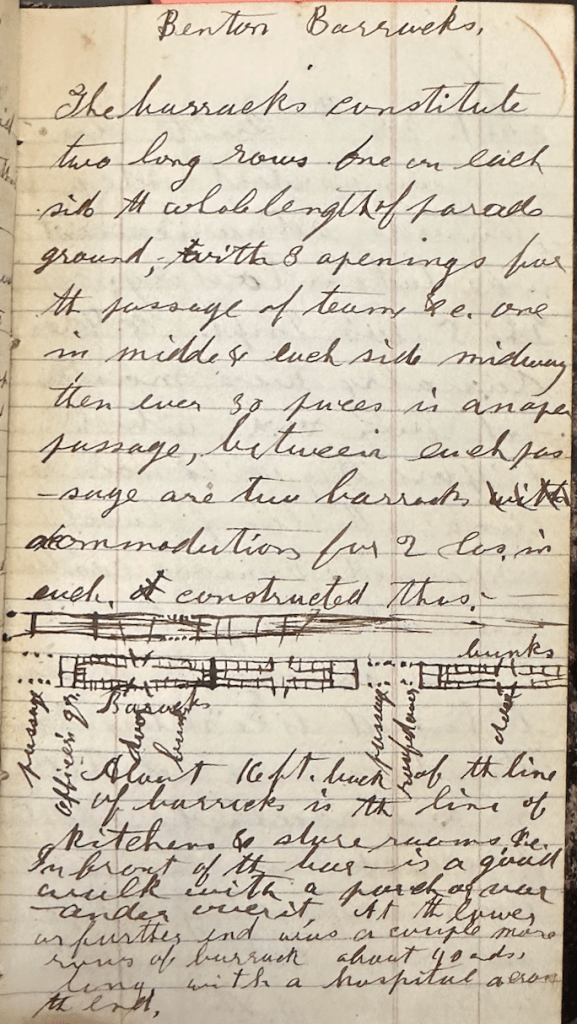 Benton Barracks.
The barracks constitute
two long rows one on each
side th whole length of parade
ground, with 3 openings for
th passage of teams &c. one
in middle & each side midway
then ever 30 paces is an open
passage, between each pas
-sage are two barracks with
accommodations for 2 Cos. in
each. constructed thus:-
bunks
Baracks
passage
Officer's qr.
door
bunks
passage
roofed over
door
About 16 ft. back of th line
of barracks is th line of
kitchens & store rooms, &c.
In front of th bar- is a good
walk with a porch or ver
-andea over it, At th lower
or further end was a couple more
rows of barrack about 90 yds.
long, with a hospital across
th end.